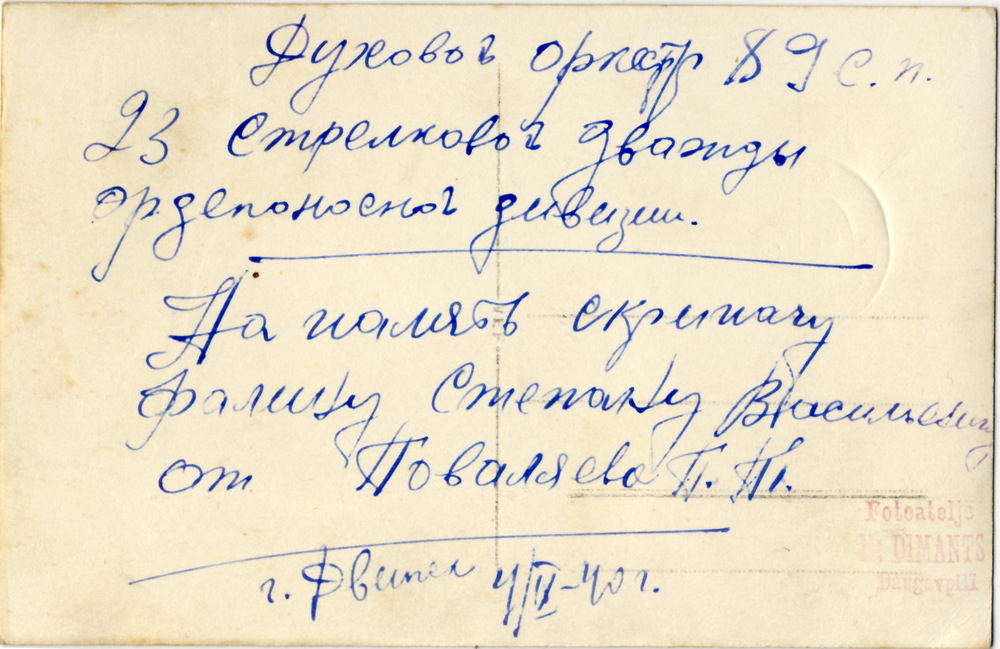 Духовой оркестр 89 с.п.
23 стрелковой дважды
орденоносной дивизии.
На память скрипачу
Фалину Степану Васильевичу
от Поваляева П. П.
г. Двинск 4/II-40 г.
Fotoatelje
DIMANTS
Daugavpilī